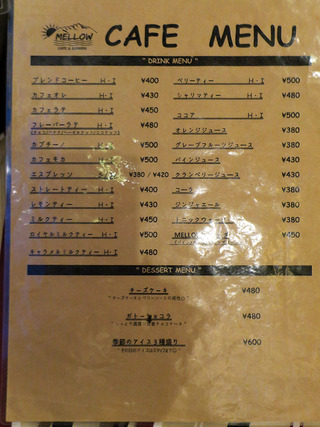 MELLOW
CAFE MENU
" DRINK MENU "
ブレンドコーヒー H・I ¥400
カフェオレ H・I ¥430
カフェラテ H・I ¥450
フレーバーラテ H・I ¥480
カプチーノ H・I ¥500
カフェモカ H・I ¥500
エスプレッソ ¥380 / ¥420
ストレートティー H・I ¥400
レモンティー H・I ¥430
ミルクティー H・I ¥450
ロイヤルミルクティー H・I ¥500
キャラメルミルクティー H・I ¥480
ベリーティー H・I ¥500
シャリマティー H・I ¥480
ココア H・I ¥500
オレンジジュース ¥380
グレープフルーツジュース ¥380
パインジュース ¥430
クランベリージュース ¥430
コーラ ¥380
ジンジャエール ¥380
トニックウォーター ¥380
MELLOW ¥450
" DESSERT MENU "
チーズケーキ ¥480
ガトーショコラ ¥480
季節のアイス3種盛り ¥600